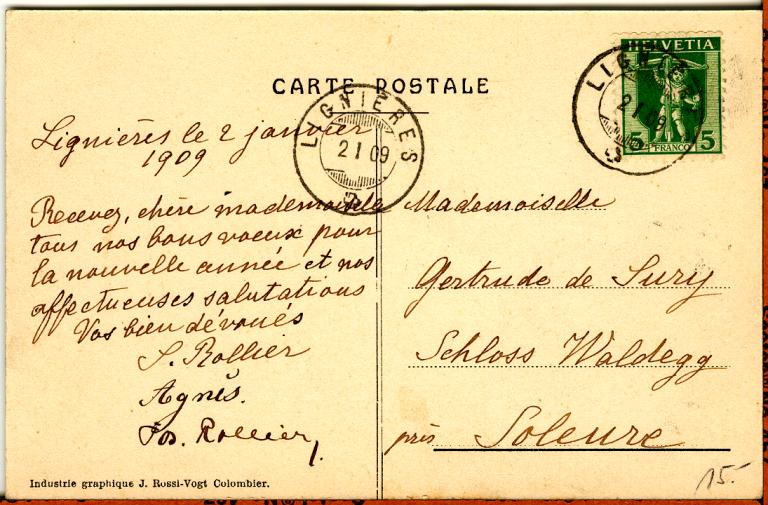 CARTE POSTALE
HELVETIA
5 FRANCO 5
LIGNIÈRES
2 I 09
LIGNIÈRES
2 I 09
Lignières le 2 janvier
1909
Recevez, chère mademoiselle
tous nos bons voeux pour
la nouvelle année et nos
affectueuses salutations
Vos bien dévoués
S. Rollier
Agnès.
Jos. Rollier,
Mademoiselle
Gertrude de Sury
Schloss Waldegg
près Soleure
Industrie graphique J. Rossi-Vogt Colombier.
15.-